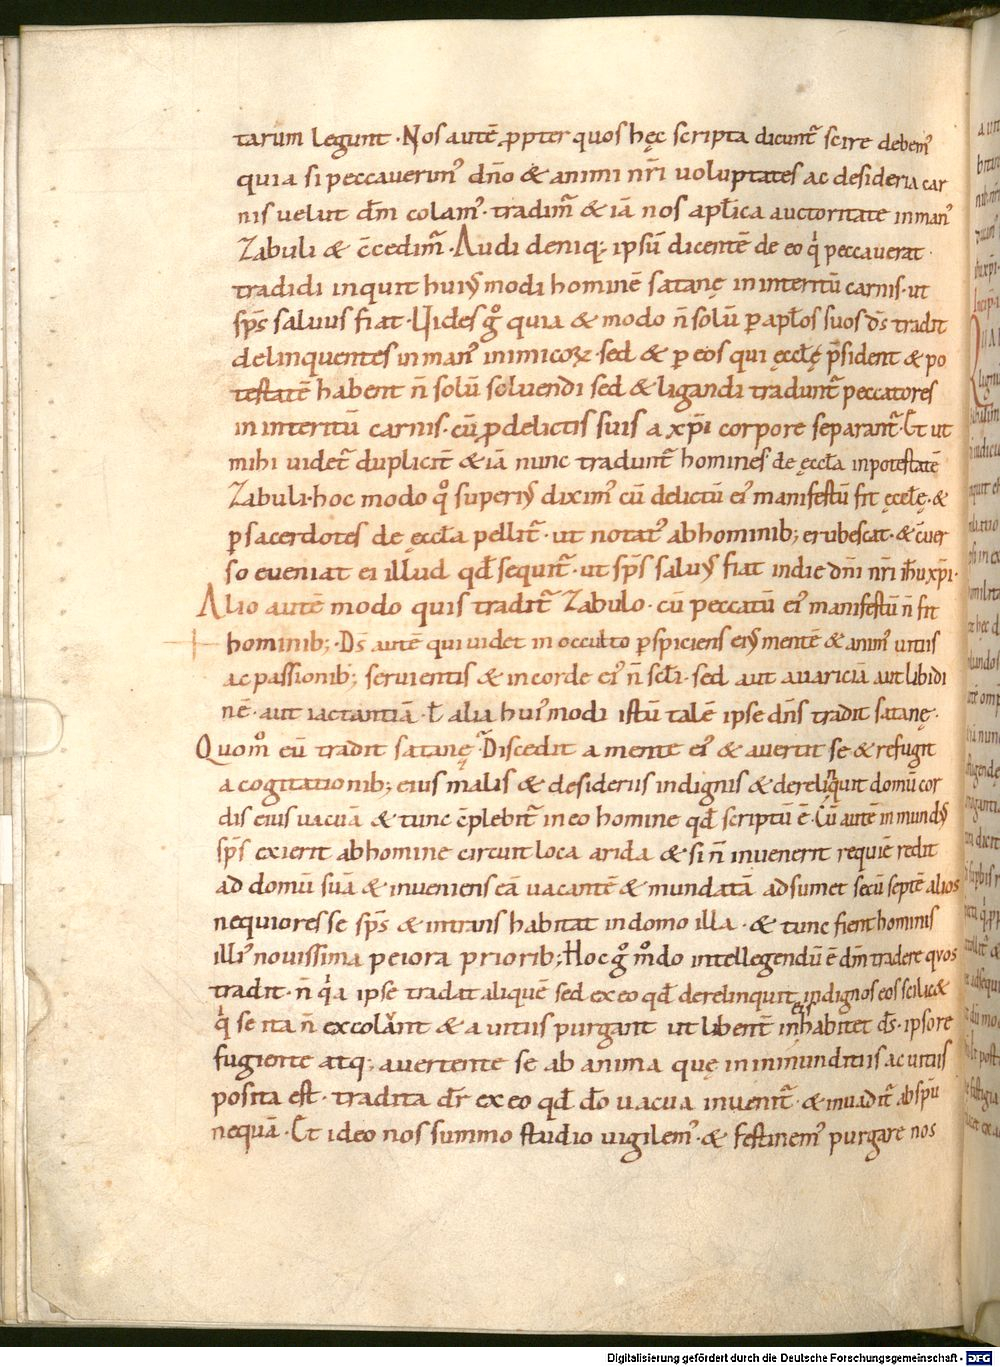 tarum legunt · Nos autē ꝓpter quos hęc scripta dicunt᷑ scire debem᷒
quia si peccauerim᷒ dn̄o & animi nr̄i uoluptates ac desideria car
nis uelut dm̄ colam᷒ · tradim᷒ & iā nos apl̄ica auctoritate in man᷒
Zabuli & c̄cedim᷒ · Audi deniq; ipsū dicentē de eo qͥ peccauerat ·
tradidi inquit huiꝰmodi hominē satanę in interitū carnis · ut
sp̄s saluus fiat · Uides gͦ quia & modo n̄ solū ꝑ apl̄os suos d̄s tradit
delinquentes in man᷒ inimicoꝝ · sed & ꝑ eos qui ęccl̄ę p̄sident & po
testatē habent n̄ solū soluendi sed & ligandi tradunt᷑ peccatores
in interitū carnis · cū ꝓ delictis suis a xp̄i corpore separant᷑ · Et ut
mihi uidet᷑ duplicit̄ & iā nunc tradunt᷑ homines de ęccl̄a in potestatē
Zabuli · hoc modo qͦ superiꝰ dixim᷒ cū delictū ei᷒ manifestū fit ęccl̄ę · &
ꝑ sacerdotes de ęccl̄a pellit᷑ · ut notat᷒ ab hominib; erubescat · & c̄uer
so eueniat ei illud qd̄ sequit᷑ · ut sp̄s saluꝰ fiat in die dn̄i nr̄i ih̄u xp̄i ·
Alio autē modo quis tradit᷑ Zabulo · cū peccatū ei᷒ manifestū n̄ fit
hominib; · Ds̄ autē qui uidet in occulto ꝑspiciens eiꝰ mentē & anim᷒ uitiis
ac passionib; seruientis & in corde ei᷒ n̄ se coli · sed aut auariciā aut libidi
nē · aut iactantiā · ł alia hui᷒modi istū talē ipse dn̄s tradit satanę ·
Quom̊ eū tradit satanę · Discedit a mente ei᷒ & auertit se & refugit
a cogitationib; eius malis & desideriis indignis & derelinquit domū cor
dis eius uacuā & tunc c̄plebit᷑ in eo homine qd̄ scriptū ē · Cū autē inmundꝰ
sp̄s exierit ab homine circuit loca arida & si n̄ inuenerit requiē redit
ad domū suā & inueniens eā uacantē & mundatā adsumet secū septē alios
nequiores se sp̄s & intrans habitat in domo illa · & tunc fient hominis
illi᷒ nouissima peiora priorib; Hoc gͦ mͦdo intellegendū ē dm̄ tradere quos
tradit · n̄ qͥa ipse tradat aliquē sed ex eo qd̄ derelinquit indignos eos scilic&
qͥ se ita n̄ excolunt & a uitiis purgant ut libent᷑ in eis habitet d̄s · ipso re
fugiente atq; auertente se ab anima quę in inmunditiis ac uitiis
posita est · tradita dr̄ ex eo qd̄ d̄o uacua inuenit᷑ · & inuadit᷑ ab sp̄u
nequā · Et ideo nos summo studio uigilem᷒ · & festinem᷒ purgare nos
Digitalisierung gefördert durch die Deutsche Forschungsgemeinschaft - DFG